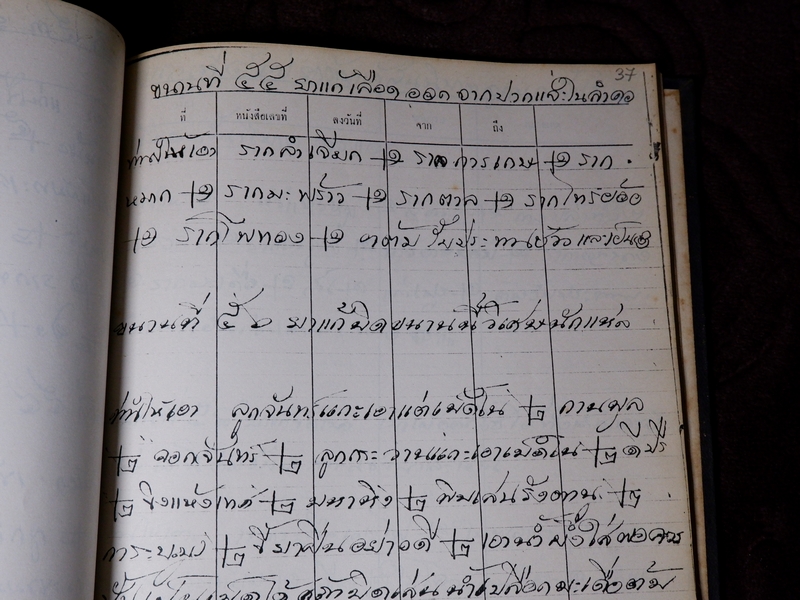 37
ขนานที่ ๕๕ ยาแก้เลือดออกจากปากและในลำคอ
ที่ หนังสือเลขที่ ลงวันที่ จาก ถึง
ท่านให้เอา รากลำเจียก ๑ ราก การเกษ ๑ ราก
หมาก ๑ รากมะพร้าว ๑ รากตาล ๑ รากไทรย้อย
๑ รากโพทอง ๑
ขนานที่ ๕๖ ยาแก้บิดขนานนี้วิเศษนักแหล
ท่านให้เอา ลูกจันทร์แกะเอาแต่เม็ดใน ๒ กานพลู
๒ ดอกจันทร์ ๒ ลูกกระวานแกะเอาเม็ดใน ๒ ดีปรี
๒ ขิงแห้งเทศ ๒ มหาหิง ๒ พิมเสน ๒
การะบูน ๒ ขี้ยาฝิ่นอย่างดี ๒ เอาน้ำผึ้งใส่พอควร
น้ำเปลือกมะเดื่อต้ม